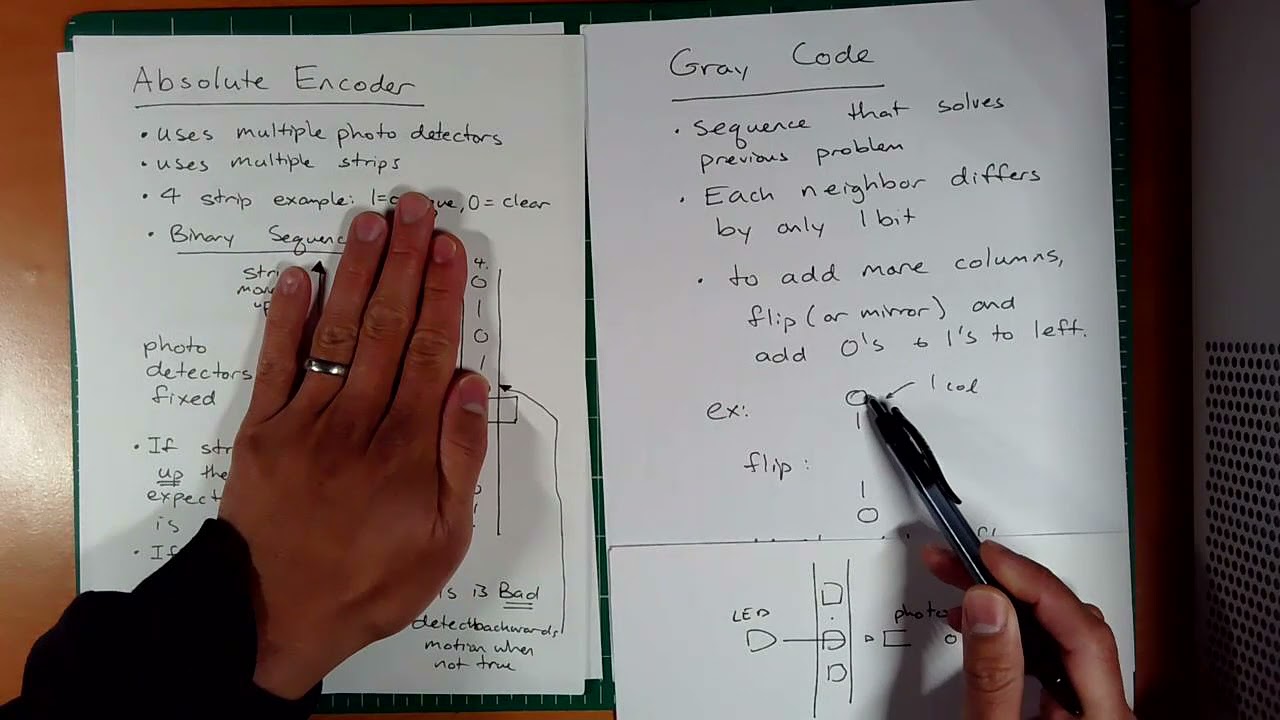 Absolute Encoder
• uses multiple photo detectors
• uses multiple strips
• 4 strip example: 1= , 0 = clear
• Binary
4.
0
1
0
1
up
photo
detectors
fixed
• If
up the
expect
is
• If
is Bad
detect backwards
motion when
not true
Gray Code
• sequence that solves
previous problem
• Each neighbor differs
by only 1 bit
• to add more columns,
flip (or mirror) and
add 0's & 1's to left.
ex: 0 1 col
1
flip:
1
0
LED
photo